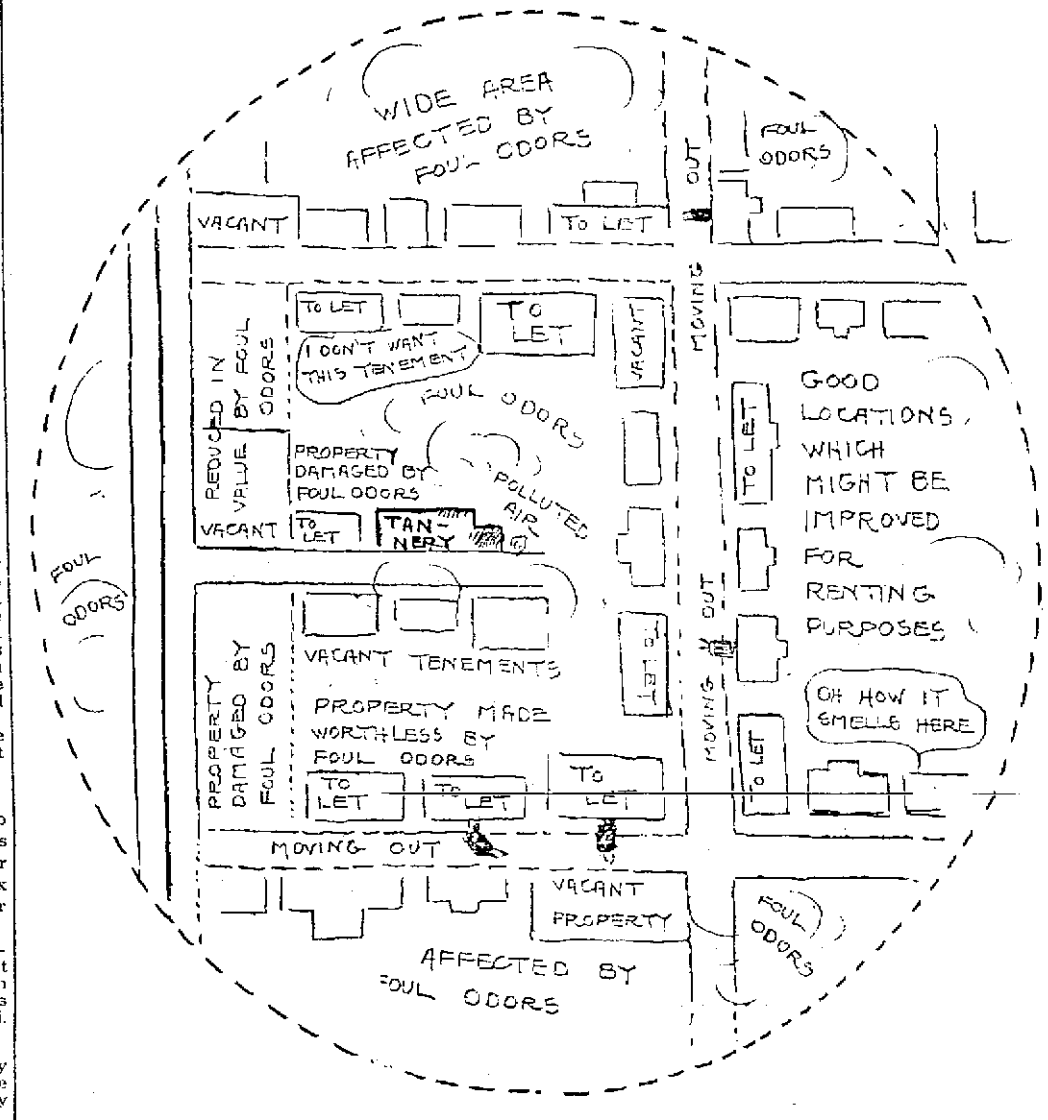 WIDE AREA
AFFECTED BY
FOUL ODORS
FOUL
ODORS
VACANT
TO LET
MOVING OUT
TO LET
TO
LET
VACANT
I DON'T WANT
THIS TENEMENT
REDUCED IN
VALUE BY FOUL
ODORS
FOUL ODORS
PROPERTY
DAMAGED BY
FOUL ODORS
POLLUTED
AIR
VACANT
TO
LET
TAN-
NERY
TO LET
GOOD
LOCATIONS
WHICH
MIGHT BE
IMPROVED
FOR
RENTING
PURPOSES
FOUL
ODORS
PROPERTY
DAMAGED BY
FOUL ODORS
VACANT TENEMENTS
PROPERTY MADE
WORTHLESS BY
FOUL ODORS
TO LET
MOVING OUT
OH HOW IT
SMELLS HERE
TO
LET
TO
LET
TO
LET
TO LET
MOVING OUT
VACANT
PROPERTY
FOUL
ODORS
AFFECTED BY
FOUL ODORS